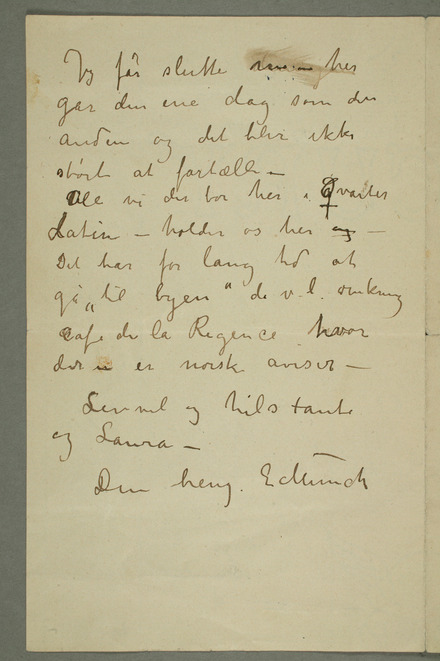 Jeg får slutte her
går den ene dag som den
anden og det blir ikke
stort at fortælle –
Alle vi der bor her i Qvartier
Latin – holder os her og –
Det tar for lang tid at
gå „til byen" d.v.s. omkring
cafe de la Regence hvor
der er norsk aviser –
Levvel og hils tante
og Laura –
Din heng. EMunch